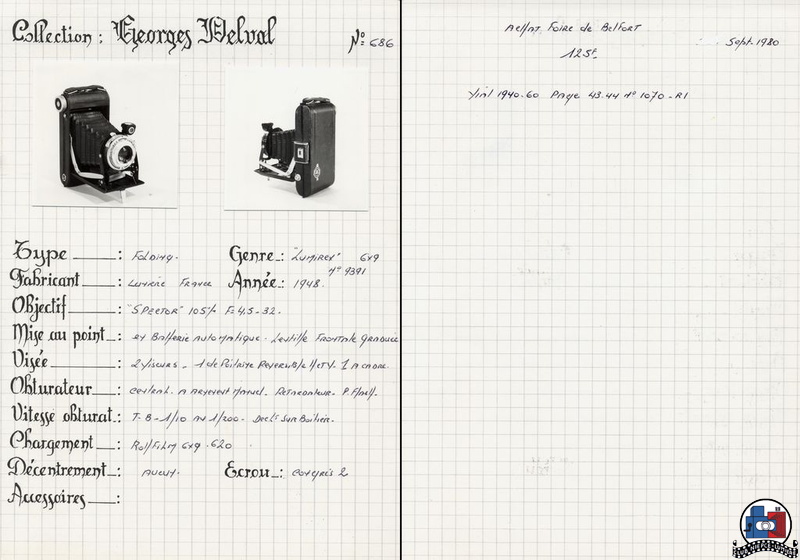 Collection : Georges Delval
N° 686
Type : Folding. Genre : "Lumirex" 6x9
N° 9391
Fabricant : Lumière France Année : 1948.
Objectif : "Spector" 105 F=4.5-32.
Mise au point : et Batterie automatique. Lentille Frontale Graduée
Visée : 2 Viseurs. 1 de Poitrine Reversible H et V. 1 A cadre.
Obturateur : central. A armement Manuel. Retardateur. P. Flash.
Vitesse obturat. : T-B-1/10 au 1/200. Decl' Sur Boîtier.
Chargement : Roll Film 6x9.620
Décentrement : aucun. Ecrou : congrès 2
Accessoires :
Achat, Foire de Belfort
Sept. 1980
125F.
Vial 1940.60 Page 43.44 N° 1070-R1